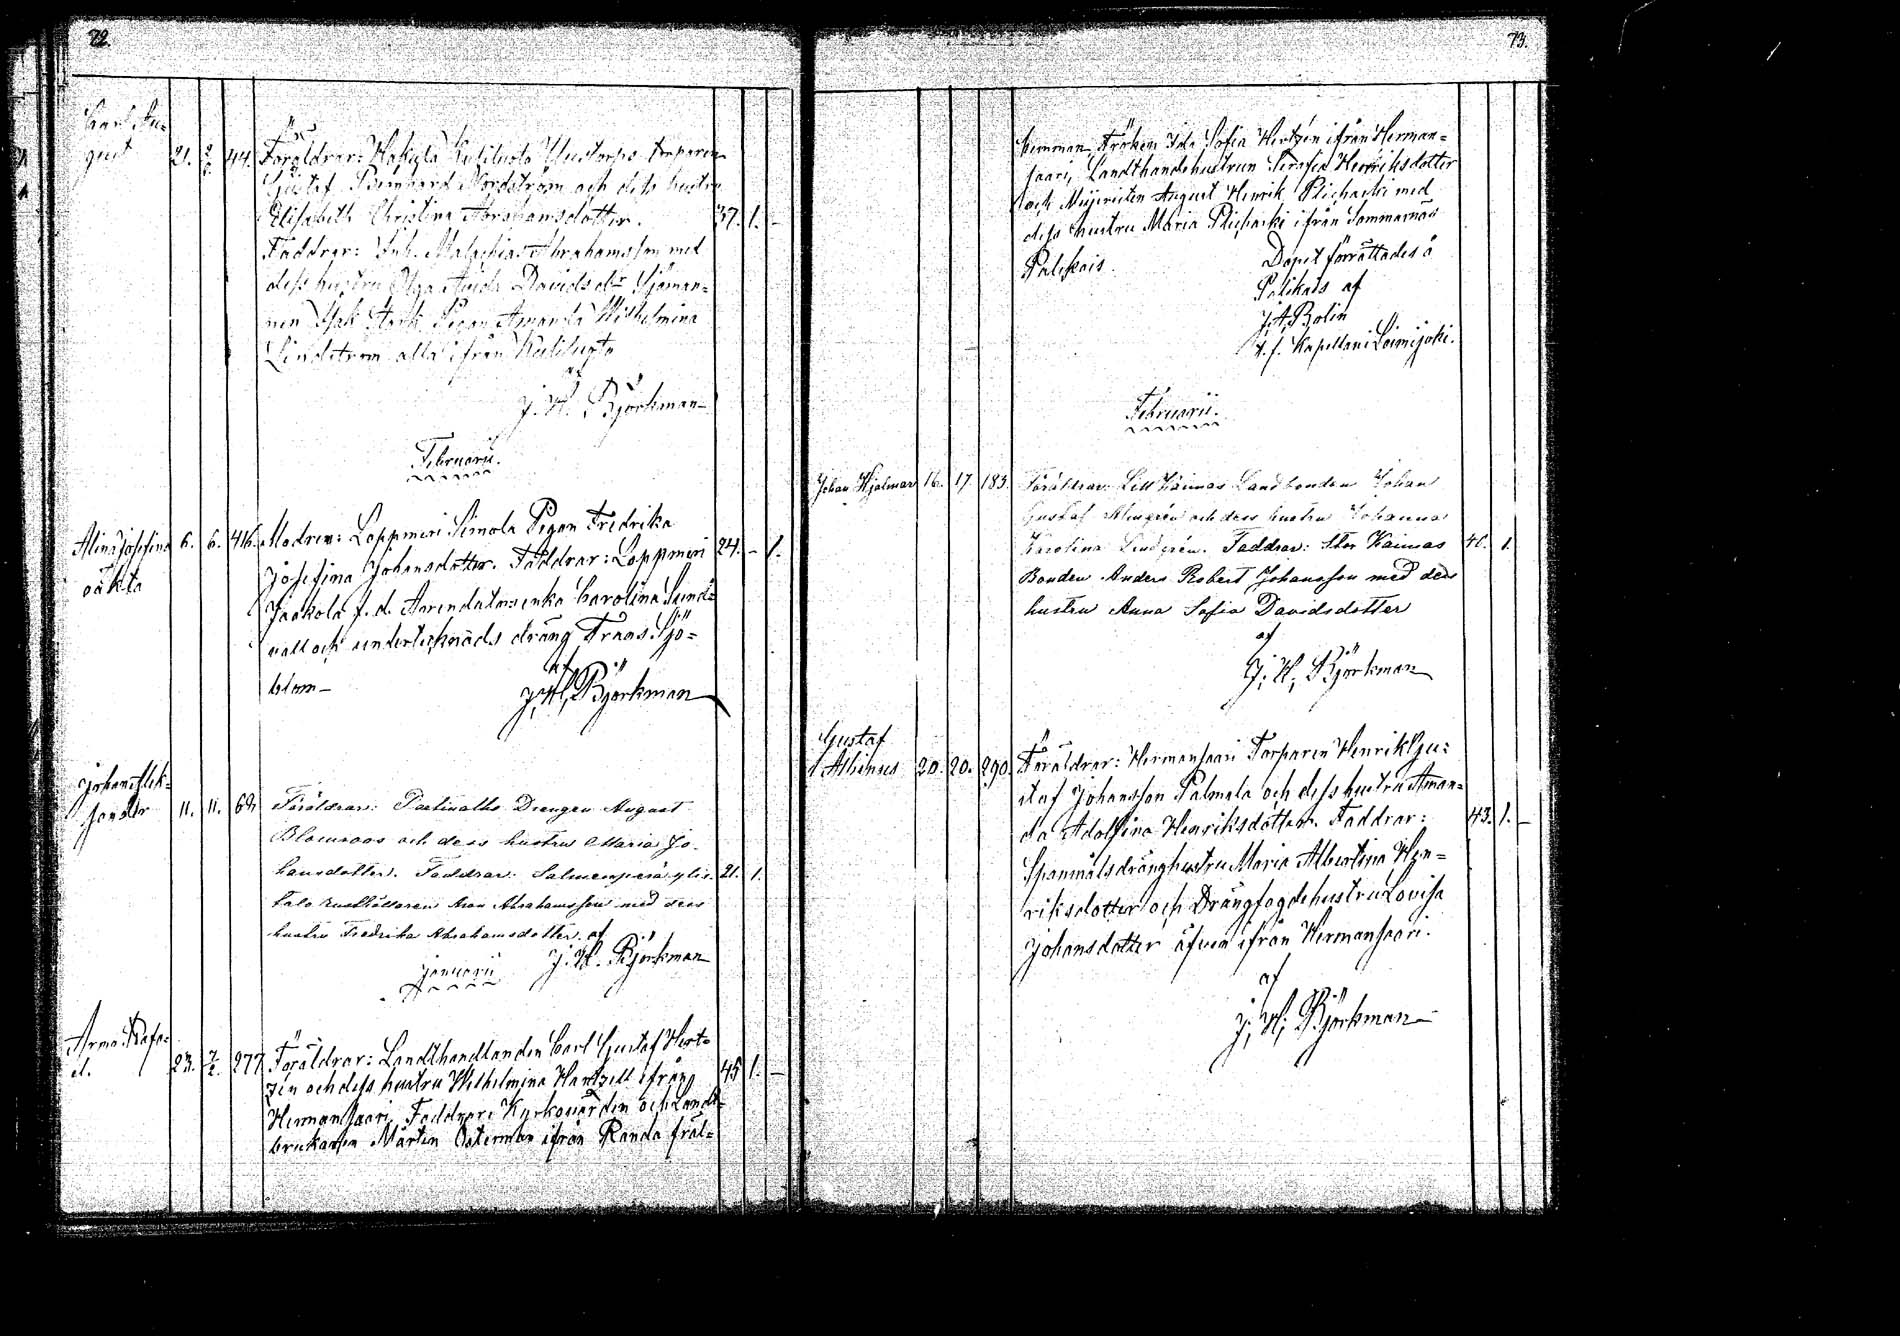 72.
Carl Au=
gust 21. 2/2 44. Föräldrar: Hakyla Kuliluoto Nustorps torparen
Gustaf Bernhard Nordström och dess hustru
Elisabeth Christina Abrahamsdotter. 37. 1. -
Faddrar: Inh. Malachias Abrahamsson med
dess hustru Olga Davidsdr Sjöman=
nen Isak Stark Pigan Amanda Wilhelmina
Lindström alla ifrån Kuliluoto
af
J. H. Björkman
Februarii.
Alina Josefina 6. 6. 416. Modren: Loppmeri Simola Pigan Fredrika
oäkta Josefina Johansdotter. Faddrar: Loppmeri 24. - 1.
Jaakola f.d. Arendatorsenka Carolina Sund=
vall och undertecknads dräng Frans Sjö=
blom -
af
J, H, Björkman
Johan Alek=
sander 11. 11. 62. Föräldrar: Drengen August
Blomroos och dess hustru Maria Jo-
hansdotter. Faddrar: Salmenperä 21. 1.
Aron Abrahamsson med dess
hustru Fredrika Abrahamsdotter. af
J. H. Björkman
Januarii
Arma Rafa=
el. 23. 7/2. 277 Föräldrar: Landthandlanden Carl Gustaf Hert=
zén och dess hustru Wilhelmina Hartzell ifrån 45 1. -
Hermansaari, Faddrar: Kyrkovärden och Landt=
brukaren Mårten Österman ifrån Randa fräl=
73.
semman Fröken Ida Sofia Hertzén ifrån Herman=
saari, Landthandehustrun Serafia Henriksdotter
och Mejeristen August Henrik med
dess hustru Maria ifrån Sommarnäs
Palikais. Dopet förrättades å
Palikais af
J, A, Bolin
t. f. Kapellan i Loimijoki.
Februarii.
Johan Hjalmar 16. 17 183. Föräldrar: Lill Käimas Landbonden Johan
Gustaf Almgrén och dess hustru Johanna
Karolina Lindgrén. Faddrar: Stor Kaimas 40. 1.
Bonden Anders Robert Johansson med dess
hustru Anna Sofia Davidsdotter
af
J, H, Björkman
Gustaf
Alfonsus 20. 20. 290. Föräldrar: Hermansaari Torparen Henrik Gu=
staf Johansson Palmala och dess hustru Aman=
da Adolfina Henriksdotter. Faddrar: 43. 1. -
Spanmålsdränghustru Maria Albertina Hen=
riksdotter och Drängfogdehustru Lovisa
Johansdotter äfven ifrån Hermansaari.
af
J, H, Björkman